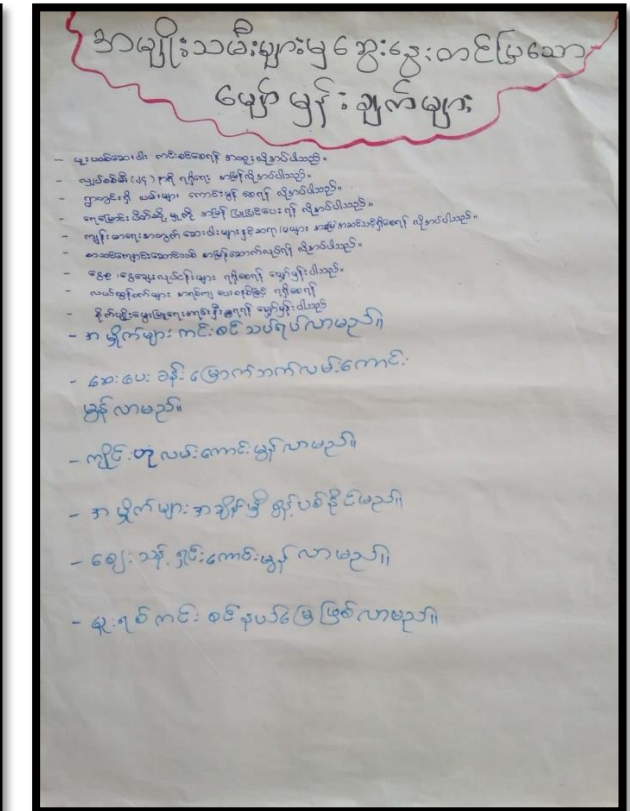 အမျိုးသမီးများမှ ဆွေးနွေးတင်ပြသော
မျှော်မှန်းချက်များ
- မူးယစ်ဆေးဝါး ကင်းစင်စေရန် အထူးလိုအပ်ပါသည်။
- လျှပ်စစ်မီး (၂၄) နာရီ ရရှိရေး အမြန်လိုအပ်ပါသည်။
- ရွာတွင်းရှိ လမ်းများ ကောင်းမွန်စေရန် လိုအပ်ပါသည်။
- ရေမြောင်းပိတ်ဆို့မှုကို အမြန် ပေးရန် လိုအပ်ပါသည်။
- ကျန်းမာရေးအတွက် ဆေးဝါးများနှင့် ဆရာ၊မများ အမြဲအဆင်သင့်ရှိစေရန် လိုအပ်ပါသည်။
- စာသင်ကျောင်းဆောင်သစ် အမြန်ဆောက်လုပ်ရန် လိုအပ်ပါသည်။
- ငွေချေးလုပ်ငန်းများ ရရှိစေရန် မျှော်မှန်းပါသည်။
- ရရှိစေရန်
- စိုက်ပျိုးမွေးမြူရေး မျှော်မှန်းပါသည်
- အမှိုက်များ ကင်းစင်သပ်ရပ်လာမည်။
- ဆေးပေးခန်းမြောက်ဘက်လမ်းကောင်း
မွန်လာမည်။
- ကျိုင်းတုံလမ်းကောင်းမွန်လာမည်။
- အမှိုက်များအချိန်မှီ စွန့်ပစ်နိုင်မည်။
- ဈေးသန့်ရှင်းကောင်းမွန်လာမည်။
- မူးရစ်ကင်းစင်နယ်မြေဖြစ်လာမည်။